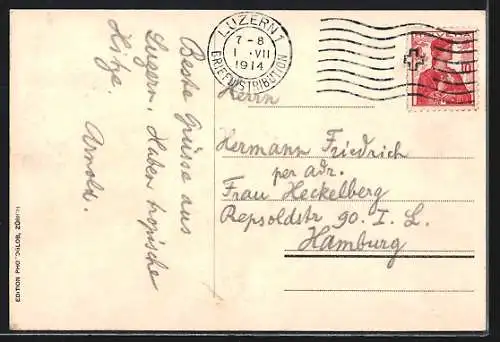 Beste Grüsse aus
Luzern. Haben tropische
Hitze.
Arnold.
LUZERN 1
7-8
1 . VII
1914
BRIEFDISTRIBUTION
HELVETIA
Herrn
Hermann Friedrich
per adr.
Frau Heckelberg
Repsoldstr 90. I. L.
Hamburg
EDITION PHOTOGLOB, ZÜRICH